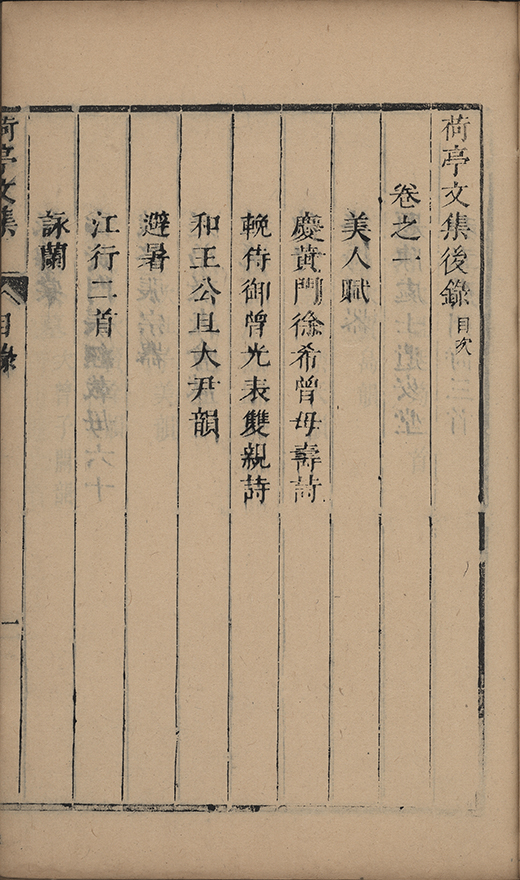 荷亭文集後錄目次
卷之一
美人賦
慶黃門徐希曾母壽詩
輓侍御曾光表雙親詩
和王公且大尹韻
避暑
江行二首
詠蘭
荷亭文集 目錄 一